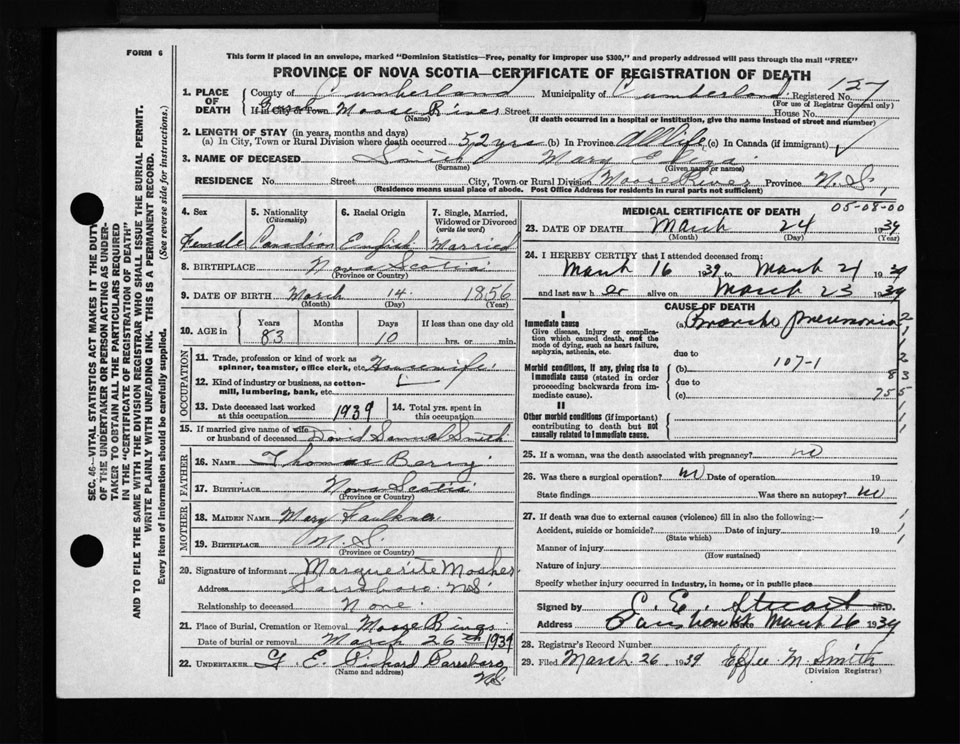 FORM 6
This form if placed in an envelope, marked "Dominion Statistics—Free, penalty for improper use $300," and properly addressed will pass through the mail "FREE"
PROVINCE OF NOVA SCOTIA—CERTIFICATE OF REGISTRATION OF DEATH
1. PLACE OF DEATH County of Cumberland Municipality of Cumberland Registered No. 127
(For use of Registrar General only)
If in City or Town Moose River Street House No.
(Name) (If death occurred in a hospital or institution, give the name instead of street and number)
2. LENGTH OF STAY (in years, months and days)
(a) In City, Town or Rural Division where death occurred 52 yrs (b) In Province All life (c) In Canada (if immigrant)
3. NAME OF DECEASED Smith Mary Eliza
(Surname) (Given name or names)
RESIDENCE No. Street City, Town or Rural Division Moose River Province N.S.
(Residence means usual place of abode. Post Office Address for residents in rural parts not sufficient)
4. Sex
Female
5. Nationality
(Citizenship)
Canadian
6. Racial Origin
English
7. Single, Married, Widowed or Divorced
(write the word)
Married
8. BIRTHPLACE Nova Scotia
(Province or Country)
9. DATE OF BIRTH March 14 1856
(Month) (Day) (Year)
10. AGE in Years Months Days If less than one day old
83 10 hrs. or min.
OCCUPATION
11. Trade, profession or kind of work as spinner, teamster, office clerk, etc. Housewife
12. Kind of industry or business, as cotton-mill, lumbering, bank, etc.
13. Date deceased last worked at this occupation 1939
14. Total yrs. spent in this occupation
15. If married give name of wife or husband of deceased David Samuel Smith
FATHER
16. NAME Thomas Berry
17. BIRTHPLACE Nova Scotia
(Province or Country)
MOTHER
18. MAIDEN NAME Mary Faulkner
19. BIRTHPLACE N.S.
(Province or Country)
20. Signature of informant Marguerite Mosher
Address Parrsboro NS
Relationship to deceased None
21. Place of Burial, Cremation or Removal Moose River
Date of burial or removal March 26th 1939
22. UNDERTAKER G. E. Pickard Parrsboro
N.S
(Name and address)
MEDICAL CERTIFICATE OF DEATH 05-08-00
23. DATE OF DEATH March 24 1939
(Month) (Day) (Year)
24. I HEREBY CERTIFY that I attended deceased from:
March 16 1939 to March 21 1939
and last saw her alive on March 23 1939
CAUSE OF DEATH
I
Immediate cause (a) Broncho pneumonia
Give disease, injury or complication which caused death, not the mode of dying, such as heart failure, asphyxia, asthenia, etc.
due to
Morbid conditions, if any, giving rise to immediate cause (stated in order proceeding backwards from immediate cause).
(b) 107-1
due to
(c)
II
Other morbid conditions (if important) contributing to death but not causally related to immediate cause.
25. If a woman, was the death associated with pregnancy? no
26. Was there a surgical operation? no Date of operation 19
State findings Was there an autopsy? no
27. If death was due to external causes (violence) fill in also the following:—
Accident, suicide or homicide? Date of injury 19
(State which)
Manner of injury
(How sustained)
Nature of injury
Specify whether injury occurred in industry, in home, or in public place
Signed by E. E. Stuart M.D.
Address Date March 26 1939
28. Registrar's Record Number
29. Filed March 26 1939 Effie M. Smith
(Division Registrar)
SEC. 46—VITAL STATISTICS ACT MAKES IT THE DUTY
OF THE UNDERTAKER OR PERSON ACTING AS UNDER-
TAKER TO OBTAIN ALL THE PARTICULARS REQUIRED
IN THE "CERTIFICATE OF REGISTRATION OF DEATH"
AND TO FILE THE SAME WITH THE DIVISION REGISTRAR WHO SHALL ISSUE THE BURIAL PERMIT.
WRITE PLAINLY WITH UNFADING INK. THIS IS A PERMANENT RECORD.
Every item of information should be carefully supplied. (See reverse side for instructions.)